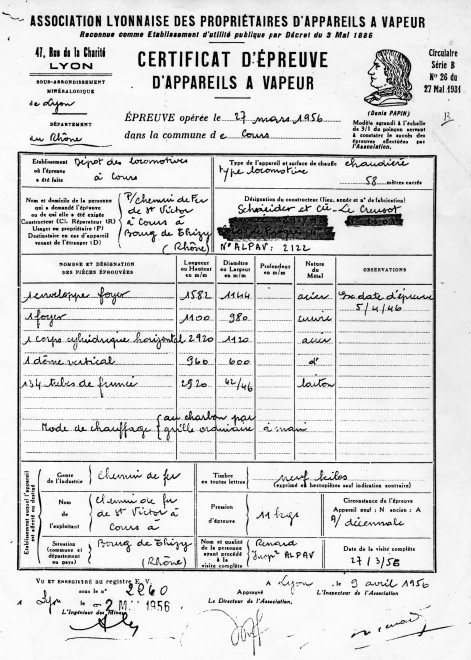 ASSOCIATION LYONNAISE DES PROPRIÉTAIRES D'APPAREILS A VAPEUR
Reconnue comme Etablissement d'utilité publique par Décret du 3 Mai 1886
47, Rue de la Charité
LYON
SOUS-ARRONDISSEMENT
MINÉRALOGIQUE
de Lyon
DÉPARTEMENT
du Rhône
CERTIFICAT D'ÉPREUVE
D'APPAREILS A VAPEUR
ÉPREUVE opérée le 27 mars 1956
dans la commune de Cours
(Denis PAPIN)
Modèle agrandi à l'échelle
de 3/1 du poinçon servant
à constater le succès des
épreuves effectuées par
l'Association.
Circulaire
Série B
N° 26 du
27 Mai 1931
Etablissement
où l'épreuve
a été faite
Dépôt des locomotives
à Cours
Type de l'appareil et surface de chauffe chaudière
type locomotive
58 mètres carrés
Nom et domicile de la personne
qui a demandé l'épreuve
ou de qui elle a été exigée
Constructeur (C), Réparateur (R)
Usager ou propriétaire (P)
Destinataire en cas d'appareil
venant de l'étranger (D)
P/Chemin de Fer
de St Victor
à Cours
Bourg de Thizy
(Rhône)
Désignation du constructeur (lieu, année et n° de fabrication)
Schneider et Cie Le Creusot
N° ALPAV: 2122
NOMBRE ET DÉSIGNATION
DES PIÈCES ÉPROUVÉES
Longueur
ou Hauteur
en m/m
Diamètre
ou Largeur
en m/m
Profondeur
en m/m
Nature
du
Métal
OBSERVATIONS
1 enveloppe foyer 1582 1144 acier Ex date d'épreuve
5/4/46
1 foyer 1100 980 cuivre
1 corps cylindrique horizontal 2920 1120 acier
1 dôme vertical 960 600 d°
134 tubes de fumée 2920 42/46 laiton
Mode de chauffage { au charbon par
grille ordinaire à main
Etablissement auquel l'appareil
est affecté ou destiné
Genre
de l'Industrie
Chemin de fer
Nom
de
l'exploitant
Chemin de fer
de St Victor à
Cours à
Situation
(commune et
département
ou pays)
Bourg de Thizy
(Rhône)
Timbre
en toutes lettres
neuf kilos
(exprimé en hectopièzes sauf indication contraire)
Pression
d'épreuve
11 kgs
Circonstance de l'épreuve
Appareil neuf : N ancien : A
A/ décennale
Nom et qualité
de la personne
ayant procédé
à la
visite complète
Renard
Inspr ALPAV
Date de la visite complète
27/3/56
VU ET ENREGISTRÉ au registre E. V.
sous le n° 2260
Lyon le 2 M 1956
L'Ingénieur des Mines
A Lyon le 9 avril 1956
Approuvé
Le Directeur de l'Association,
L'Inspecteur de l'Association